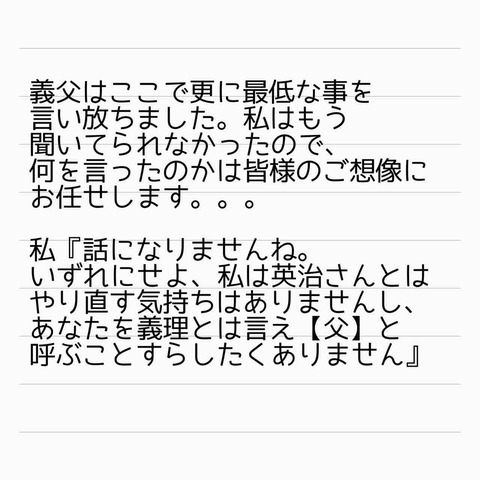 義父はここで更に最低な事を
言い放ちました。私はもう
聞いてられなかったので、
何を言ったのかは皆様のご想像に
お任せします。。。
私『話になりませんね。
いずれにせよ、私は英治さんとは
やり直す気持ちはありませんし、
あなたを義理とは言え【父】と
呼ぶことすらしたくありません』